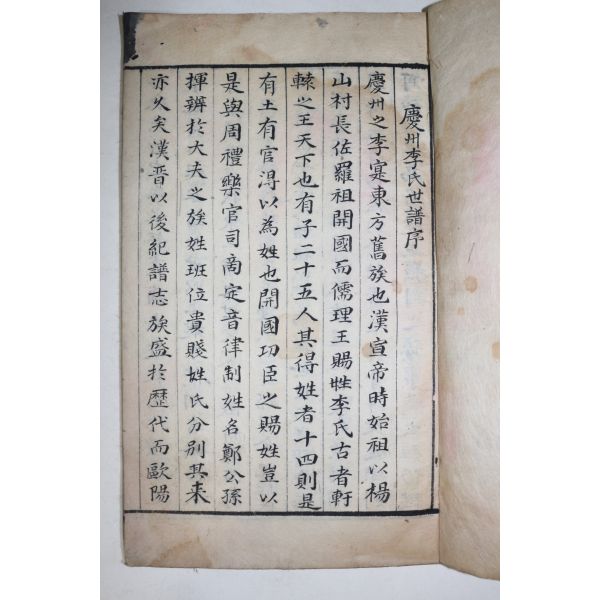 慶州李氏世譜序
慶州之李寔東方舊族也漢宣帝時始祖以楊
山村長佐羅祖開國而儒理王賜姓李氏古者軒
轅之王天下也有子二十五人其得姓者十四則是
有土有官淂以為姓也開國功臣之賜姓豈以
是與周禮樂官司商定音律制姓名鄭公孫
揮辨於大夫之族姓班位貴賤姓氏分別其来
亦久矣漢晋以後紀譜志族盛於歷代而歐陽